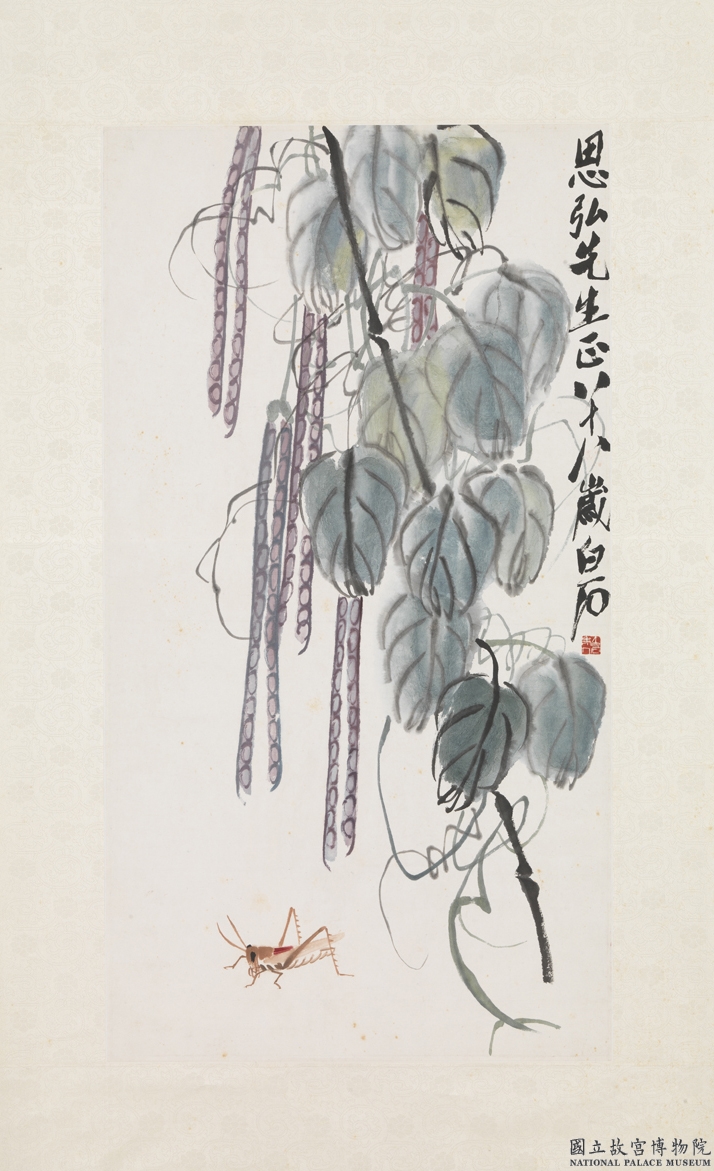 思弘先生正八十八歲白石
國立故宮博物院
NATIONAL PALACE MUSEUM